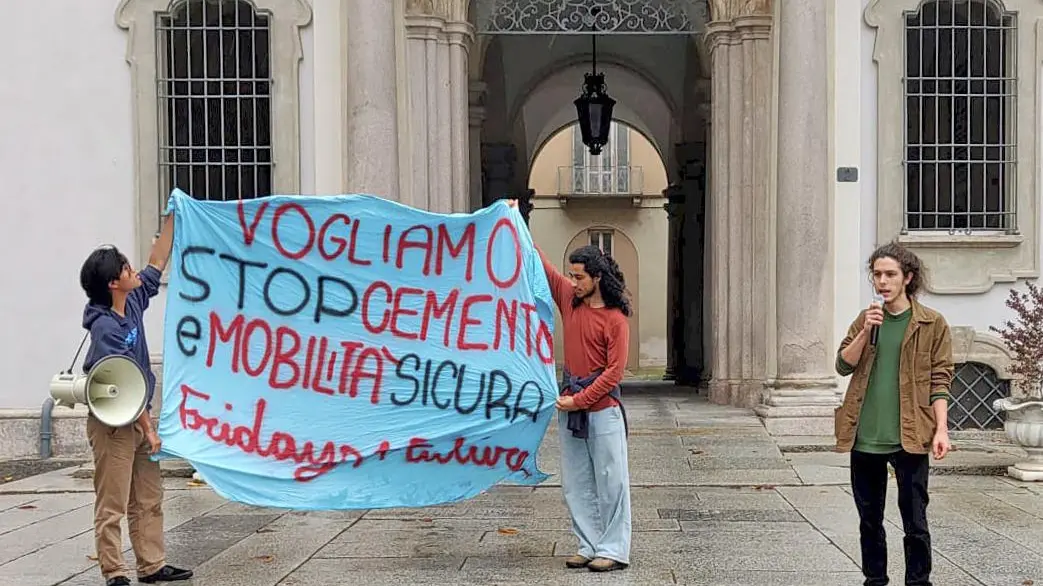 VOGLIAMO
STOP CEMENTO
e MOBILITÀ SICURA
Fridays 4 Future